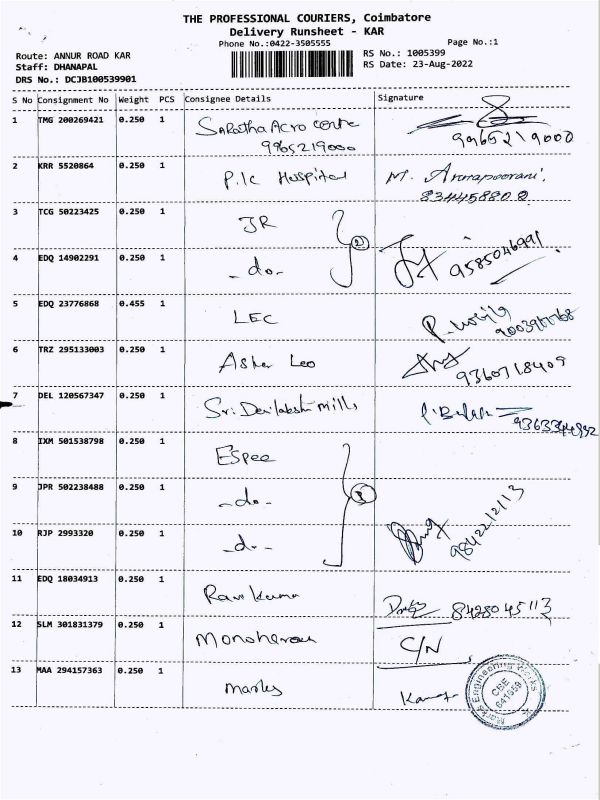 THE PROFESSIONAL COURIERS, Coimbatore
Delivery Runsheet - KAR
Phone No.:0422-3505555
Page No.:1
Route: ANNUR ROAD KAR
RS No.: 1005399
Staff: DHANAPAL
RS Date: 23-Aug-2022
DRS No.: DCJB100539901
S No Consignment No Weight PCS Consignee Details Signature
1 TMG 200269421 0.250 1
9965219000 9965219000
2 KRR 5520864 0.250 1 P.K Hospital M. Annapoorani.
3 TCG 50223425 0.250 1 JR
4 EDQ 14902291 0.250 1 -do- 9585046991
5 EDQ 23776868 0.455 1 LEC
6 TRZ 295133003 0.250 1 Asher Leo
9360718409
7 DEL 120567347 0.250 1 Sri Devilakshmi mills
8 IXM 501538798 0.250 1 Espee
9 JPR 502238488 0.250 1 -do-
10 RJP 2993320 0.250 1 -do- 9842212113
11 EDQ 18034913 0.250 1 Ravi Kumar
8428045113
12 SLM 301831379 0.250 1 C/N
13 MAA 294157363 0.250 1 Marks
Marks Engineering Works
CBE
641659